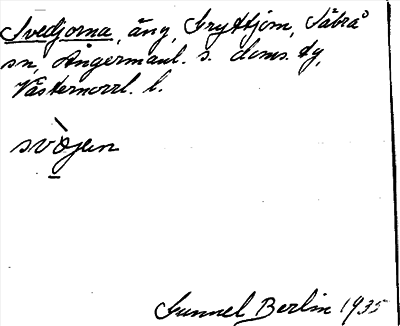 Svedjorna, äng, Gryttjom, Säbrå
sn, Ångermanl. s. doms. dg,
Västernorrl. l.
svòjen
Gunnel Berlin 1935